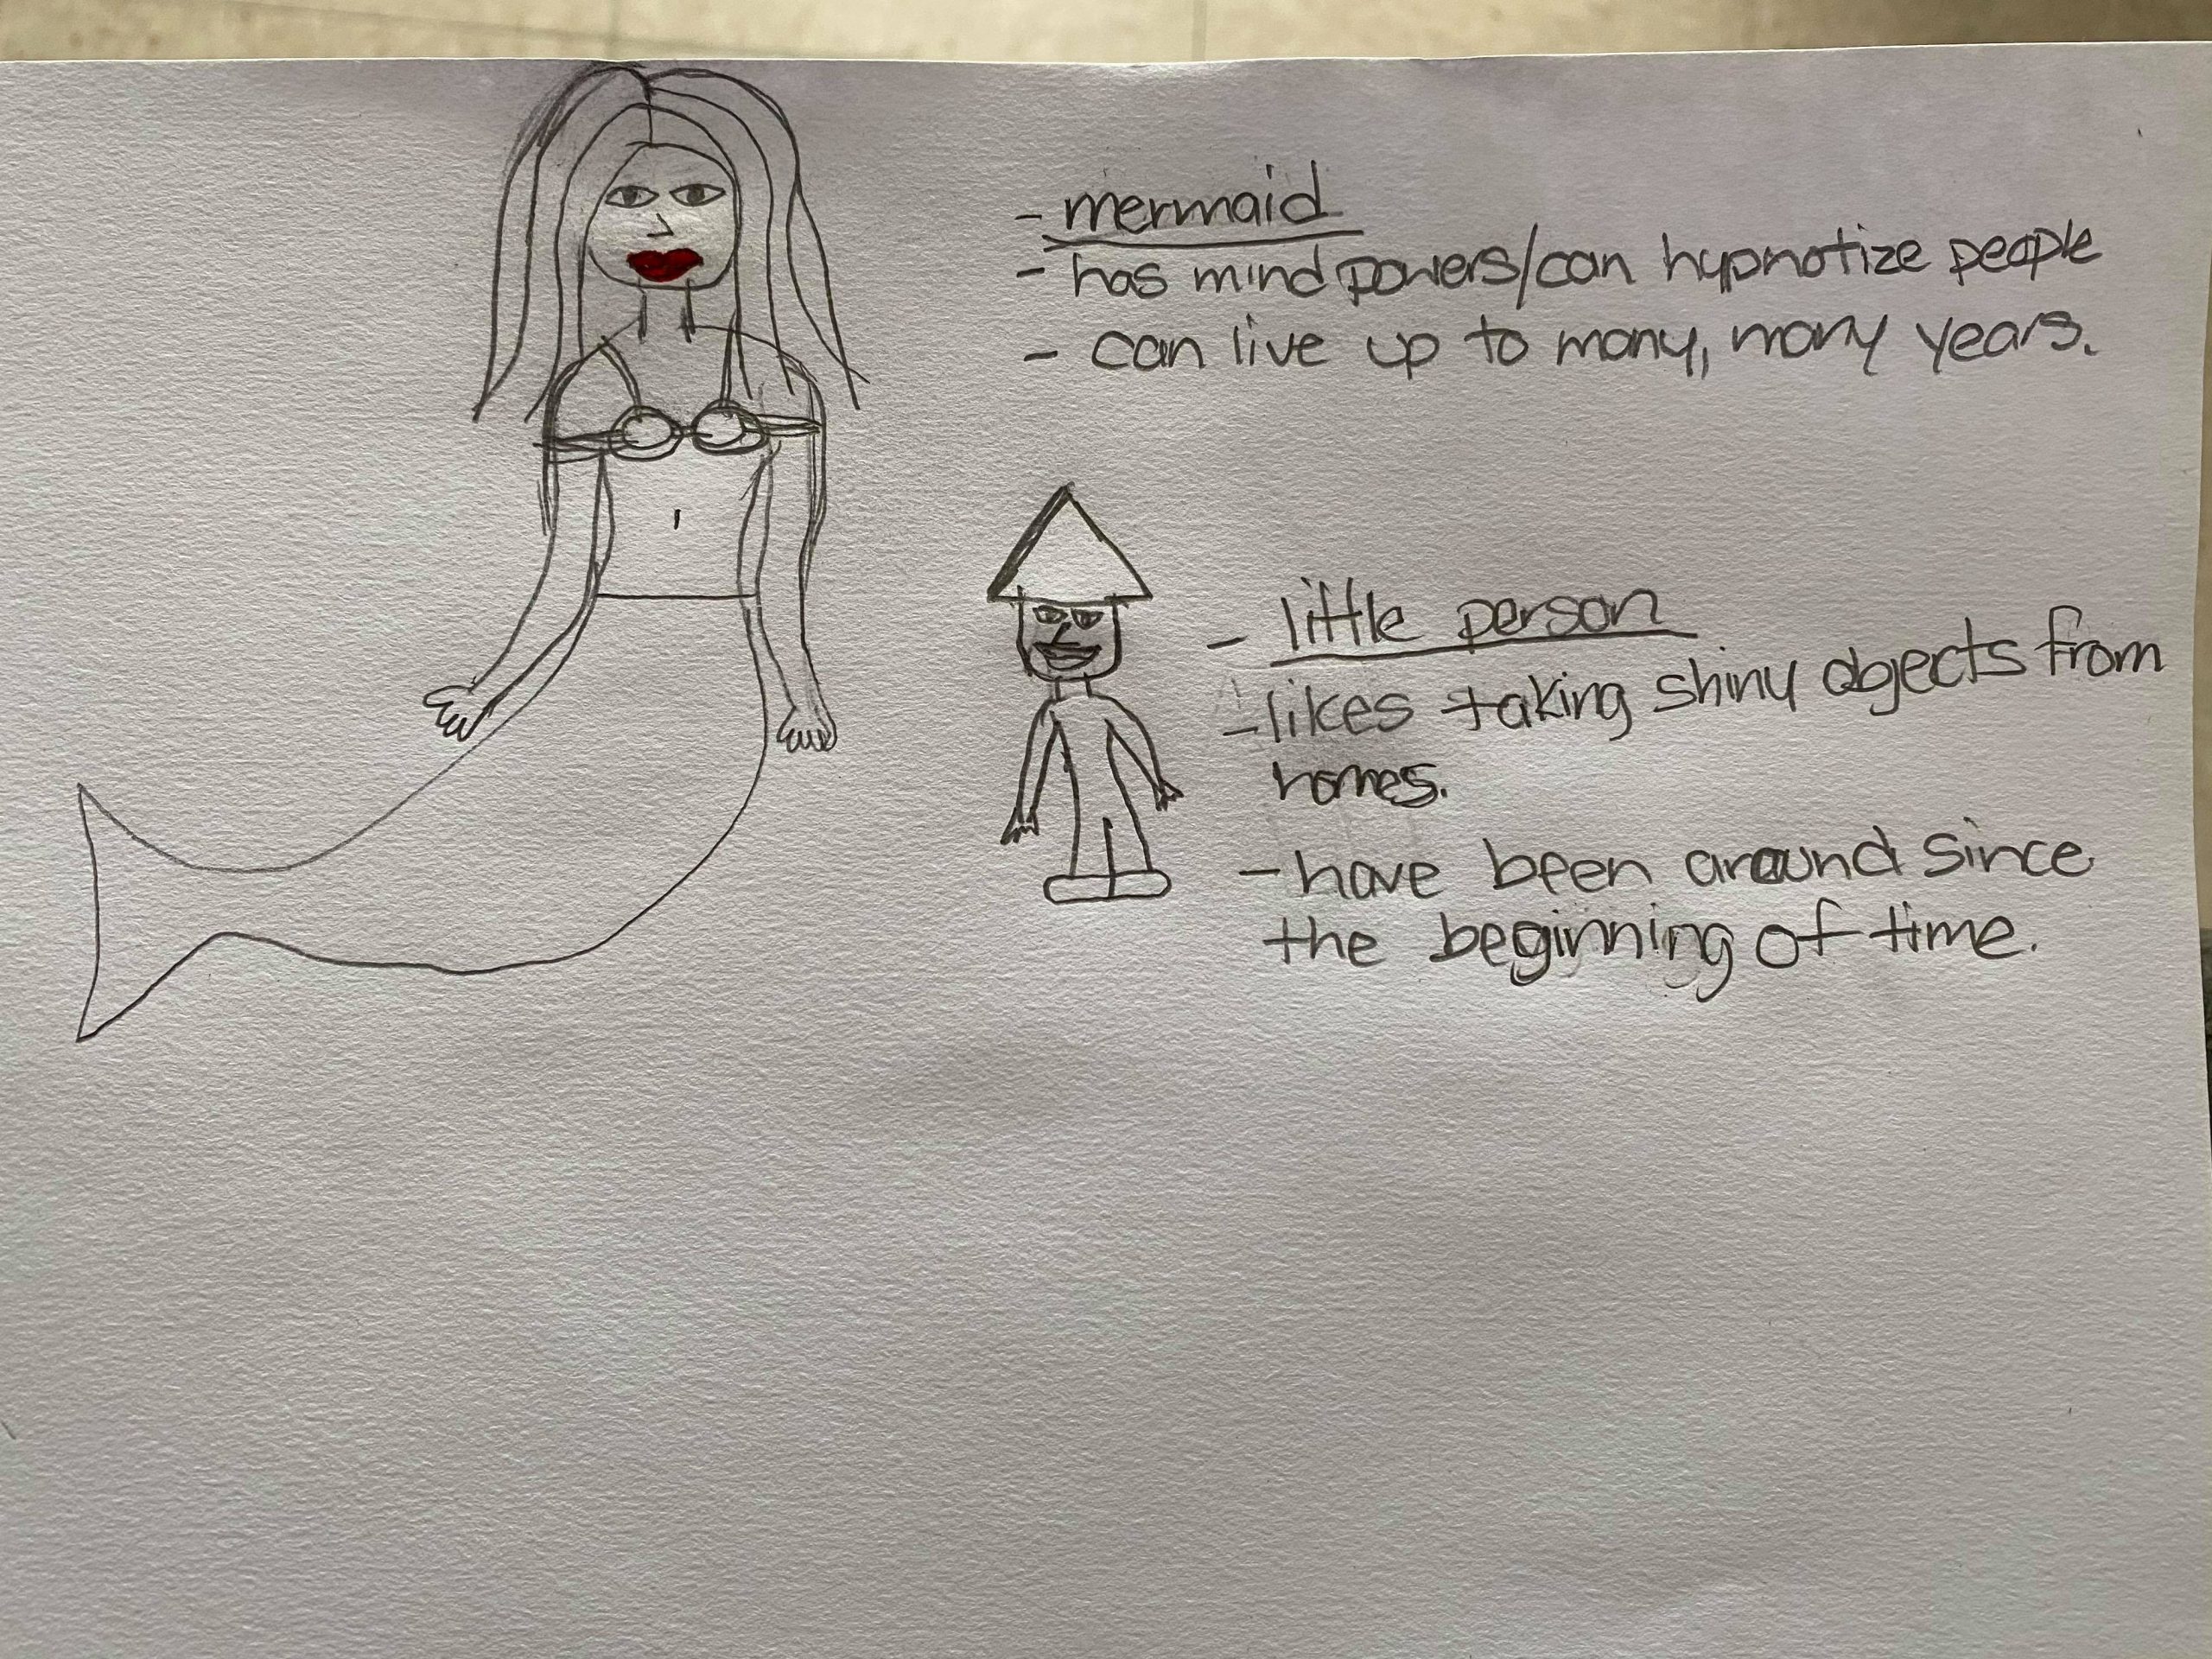 - mermaid
- has mind powers/can hypnotize people
- can live up to many, many years.
- little person
- likes taking shiny objects from
homes.
- have been around since
the beginning of time.